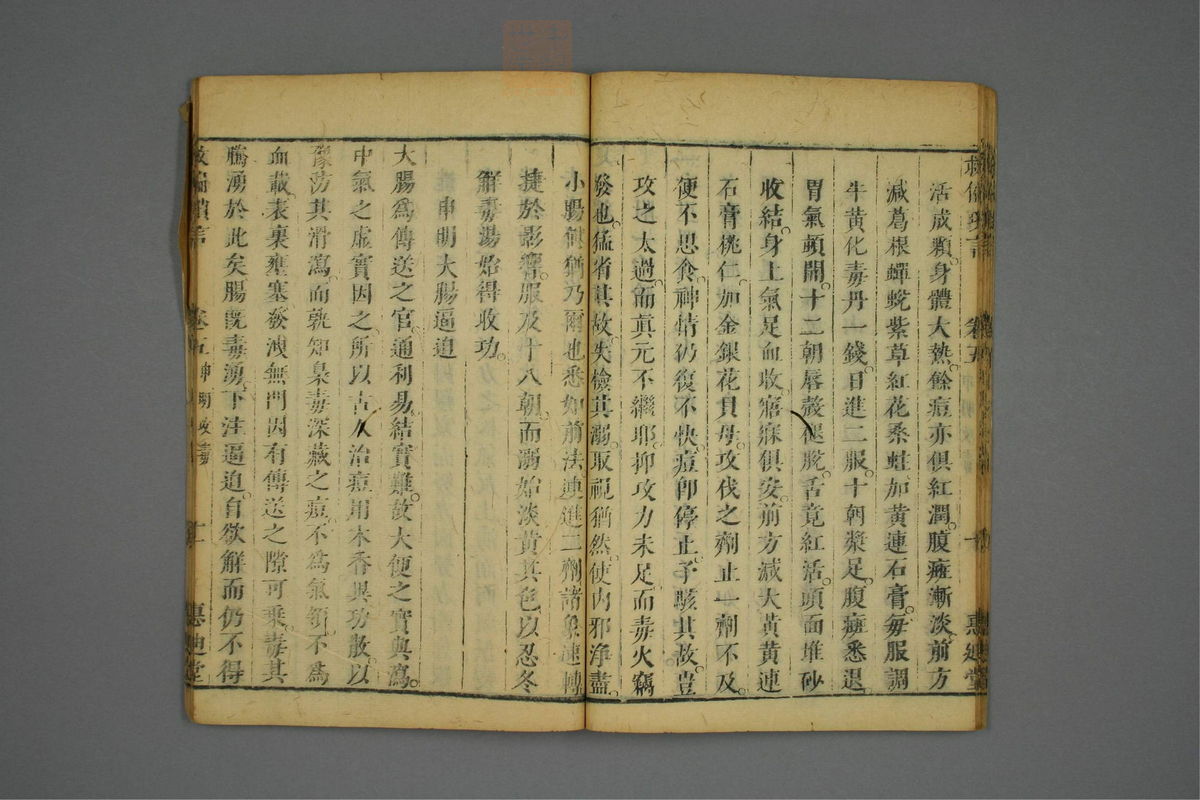 活成顆身體大熱餘痘亦俱紅潤腹痘漸淡前方
減葛根蟬蛻紫草紅花桑蛀加黃連石膏每服調
牛黃化毒丹一錢日進二服十朝漿足腹痘悉退
胃氣頓開十二朝唇殼褪脫舌竟紅活頭面堆砂
收結身上氣足血收寤寐俱安前方減大黃黃連
石膏桃仁加金銀花貝母攻伐之劑止一劑不及
便不思食神情仍復不快痘卽停止予駭其故豈
攻之太過而眞元不繼耶抑攻力未足而毒火竊
發也猛省其故失檢其溺取視猶然使內邪淨盡
小腸何猶乃爾也悉如前法連進二劑諸象速轉
捷於影響服及十八朝而溺始淡黃其色以忍冬
解毒湯始得收功
申明大腸逼迫
大腸爲傳送之官通利易結實難故大便之實與瀉
中氣之虛實因之所以古人治痘用木香異功散以
豫防其滑瀉而孰知梟毒深藏之痘不爲氣領不爲
血載表裏壅塞發洩無門因有傳送之隙可乘毒其
騰湧於此矣腸旣毒湧下注逼迫自欲解而仍不得
卷五
惠迪堂